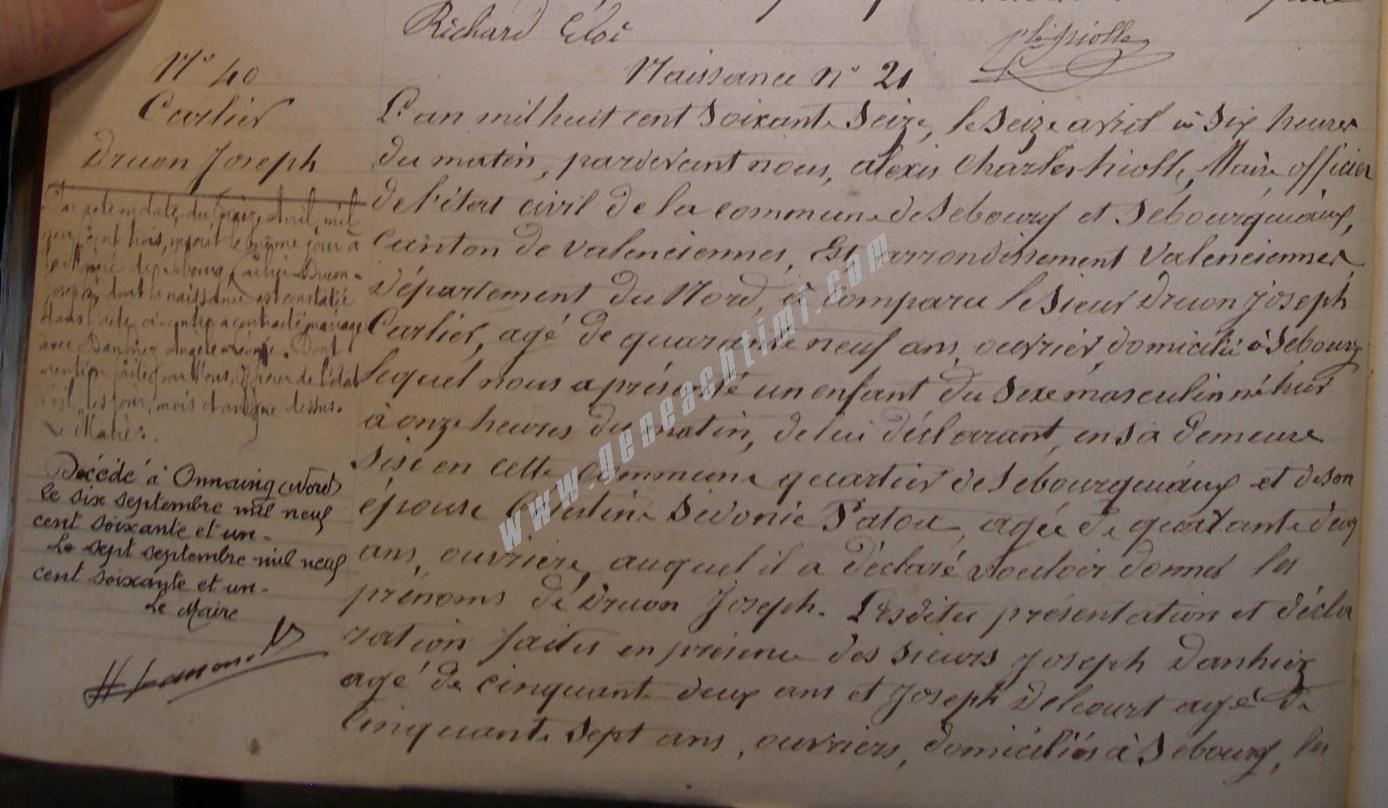 Richard Eloi
N° 40
Carlier
Druon Joseph
Par acte en date du treize Avril, mil
neuf cent trois, inscrit le même jour à
la de Sebourg, Carlier Druon-
Joseph dont la naissance est constatée
dans l'acte ci-contre a contracté mariage
avec Danhiez Angèle . Dont
mention faite par Nous, Officier de l'état
civil, les jour, mois et an que dessus.
Le Maire.
Décédé à Onnaing (Nord)
le six septembre mil neuf
cent soixante et un -
Le sept septembre mil neuf
cent soixante et un -
Le Maire
Naissance n° 21
L'an mil huit cent soixante seize, le seize avril à six heures
du matin, pardevant nous, alexis Charles hiolle, Maire officier
de l'état civil de la commune de Sebourg et Sebourquiaux,
canton de valenciennes, Est, arrondissement Valenciennes,
Département du Nord, a comparu le sieur Druon Joseph
Carlier, agé de quarante neuf ans, ouvrier domicilié à Sebourg
lequel nous a présenté un enfant du sexe masculin né hier
à onze heures du matin, de lui déclarant, en sa demeure
sise en cette commune quartier de Sebourquiaux et de son
épouse Sidonie Patou, agée de quarante deux
ans, ouvrière, auquel il a déclaré vouloir donner les
prénoms de Druon Joseph. Lesdites présentation et décla
ration faites en présence des sieurs Joseph Danhiez
agé de cinquante deux ans et Joseph Delcourt agé de
cinquante sept ans, ouvriers, domiciliés à Sebourg, les
www.geneachtimi.com